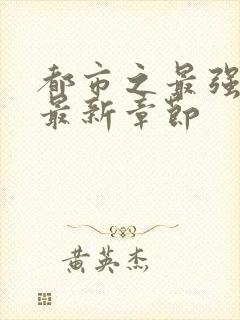 都市之最强
最新章节
黄英杰